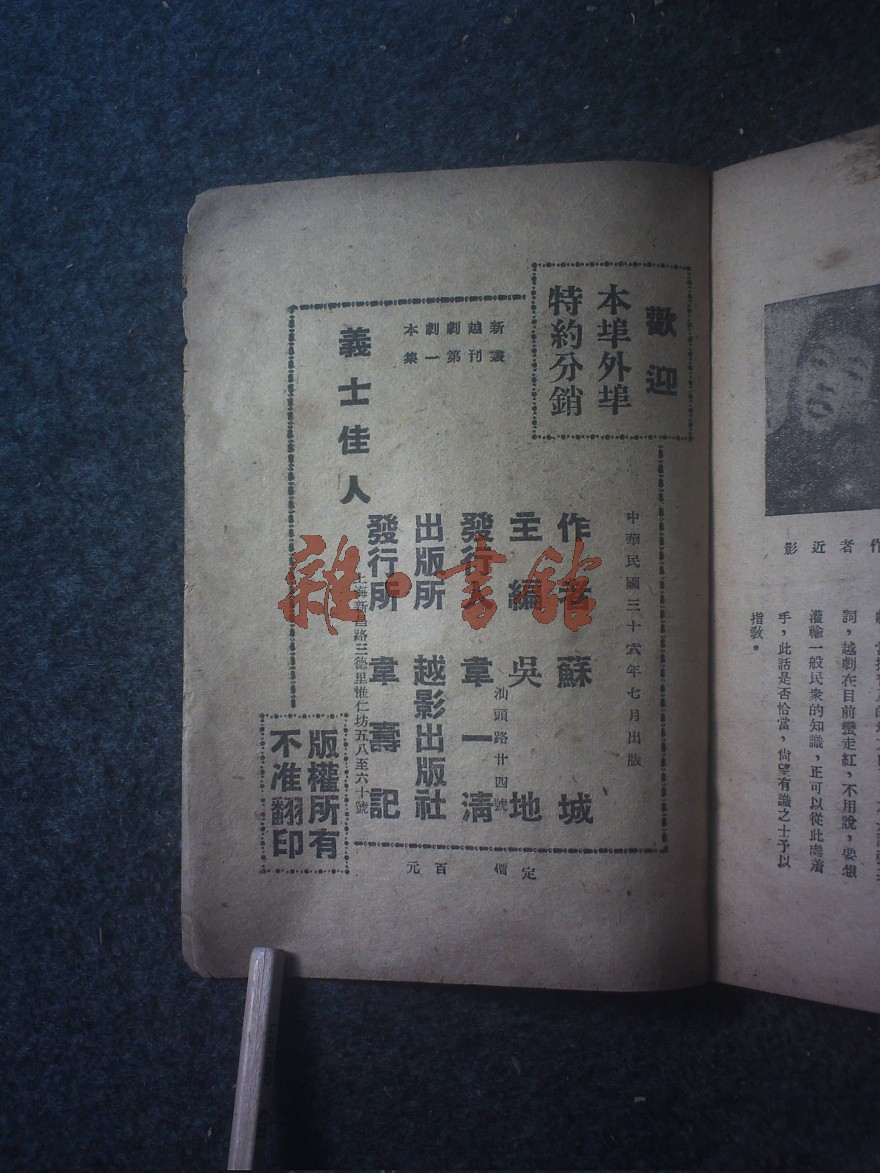 作者近影
詞，越劇在目前蠻走紅，不用說，要想
灌輸一般民衆的知識，正可以從此處着
手，此話是否恰當，尙望有識之士予以
指敎。
歡迎
本埠外埠
特約分銷
中華民國三十六年七月出版
作者 蘇城
主編 吳地
汕頭路廿四號
發行人 韋一清
出版所 越影出版社
發行所 韋壽記
上海新昌路三德里惟仁坊五八至六十號
新越劇劇本
叢刊第一集
義士佳人
定價 百元
版權所有
不准翻印
雜·書館